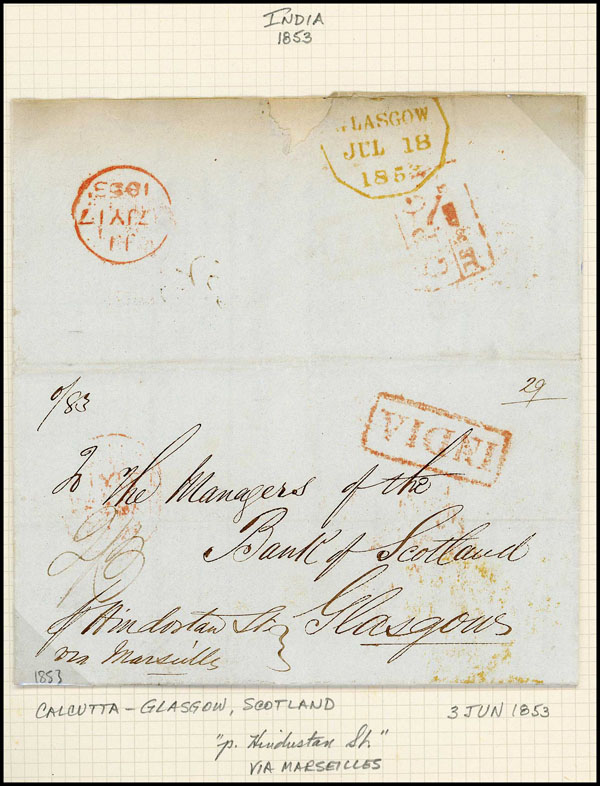 INDIA
1853
GLASGOW
JUL 18
185
1853
JY 17
o/83
29
INDIA
To The Managers of the
Bank of Scotland
Glasgow
p Hindostan St.
via Marseilles
1853
CALCUTTA – GLASGOW, SCOTLAND
3 JUN 1853
"p. Hindustan St."
VIA MARSEILLES